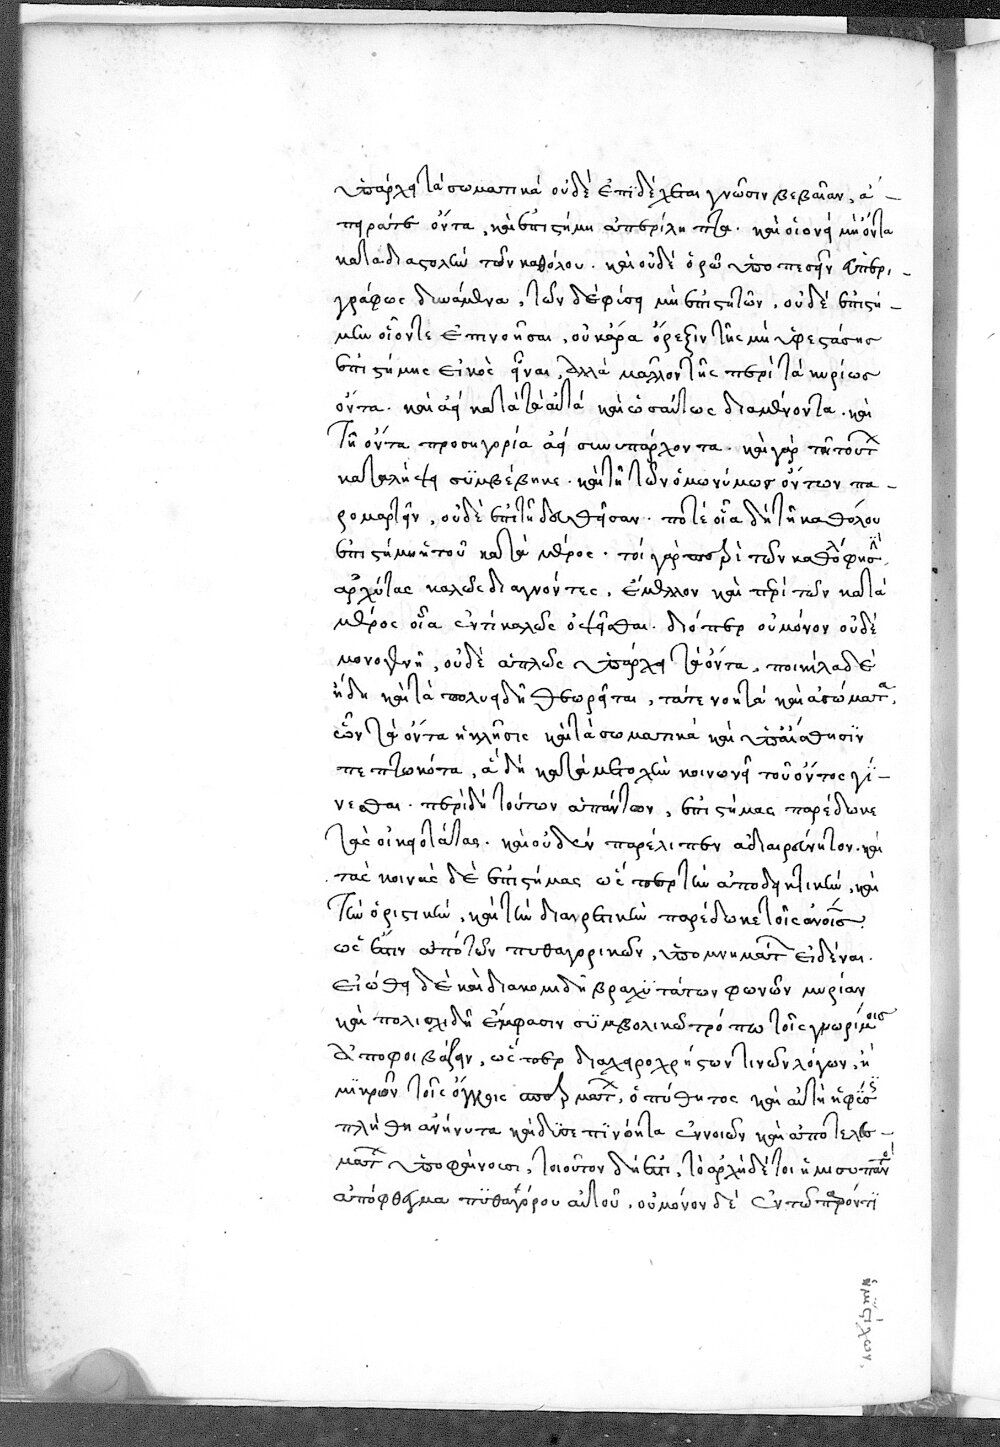 ὑπάρχει τὰ σωματικὰ οὐδὲ ἐπιδέχεται γνῶσιν βεβαίαν, ἄ-
πειρά τε ὄντα, καὶ ἐπιστήμη ἀπερίληπτα. καὶ οἱονεὶ μὴ ὄντα
κατὰ διαστολὴν τῶν καθόλου. καὶ οὐδὲ ὅρῳ ὑποπεσεῖν εὐπερι-
γράφως δυνάμενα, τῶν δὲ φύσει μὴ ἐπιστητῶν, οὐδὲ ἐπιστή-
μην οἷόν τε ἐπινοῆσαι, οὐκ ἄρα ὄρεξιν τῆς μὴ ὑφεστώσης
ἐπιστήμης εἰκὸς εἶναι, ἀλλὰ μᾶλλον τῆς περὶ τὰ κυρίως
ὄντα. καὶ ἀεὶ κατὰ τὰ αὐτὰ καὶ ὡσαύτως διαμένοντα. καὶ
τῇ ὄντα προσηγορία ἀεὶ συνυπάρχοντα. καὶ γὰρ τῇ τούτων
καταλήψει συμβέβηκε. καὶ τὴν τῶν ὁμωνύμως ὄντων πα-
ρομαρτεῖν, οὐδὲ ἐπιτηδευθεῖσαν. ποτὲ οἷα δὴ τῇ καθόλου
ἐπιστήμη ἡ τοῦ κατὰ μέρος. τοὶ γὰρ περὶ τῶν καθόλου φησὶν
ἀρχύτας καλῶς διαγνόντες, ἔμελλον καὶ περὶ τῶν κατὰ
μέρος οἷα ἐντὶ καλῶς ὀψεῖσθαι. διόπερ οὐ μόνον οὐδὲ
μονογενῆ, οὐδὲ ἁπλῶς ὑπάρχει τὰ ὄντα, ποικίλα δὲ
ἤδη καὶ τὰ πολυειδῆ θεωρεῖται, τά τε νοητὰ καὶ ἀσώματα,
ὧν τὰ ὄντα ἡ κλῆσις καὶ τὰ σωματικὰ καὶ ὑπ' αἴσθησιν
πεπτωκότα, ἃ δὴ κατὰ μετοχὴν κοινωνεῖ τοῦ ὄντος γί-
νεσθαι. περὶ δὴ τούτων ἁπάντων, ἐπιστήμας παρέδωκε
τὰς οἰκειοτάτας. καὶ οὐδὲν παρέλιπεν ἀδιαιρεύνητον. καὶ
τὰς κοινὰς δὲ ἐπιστήμας ὥσπερ τὴν ἀποδεικτικὴν, καὶ
τὴν ὁριστικὴν, καὶ τὴν διαιρετικὴν παρέδωκε τοῖς ἀνοις.
ὡς ἔστιν ἀπὸ τῶν πυθαγορικῶν, ὑπομνημάτων εἰδέναι.
εἰώθει δὲ καὶ διακομιδῇ βραχυτάτων φωνῶν μυρίαν
καὶ πολυσχιδῆ ἔμφασιν συμβολικῷ τρόπῳ τοῖς γνωρίμοις
ἀποφοιβάζειν, ὥσπερ διὰ χειροχρήστων τινῶν λόγων, ἢ
μικρῶν τοῖς ὄγκοις σπερμάτων, ὁ πύθητος καὶ αὐτὴ ἡ φύσις
πλήθη ἀνήνυτα καὶ δυσεπινόητα ἐννοιῶν καὶ ἀποτελεσ-
μάτων ὑποφαίνουσι, τοιοῦτον δή ἐστι, τὸ ἀρχὴ δέ τοι ἥμισυ παντὸς
ἀπόφθεγμα πυθαγόρου αὐτοῦ, οὐ μόνον δὲ ἐν τῷ παρόντι
ἡμιστιχίων.